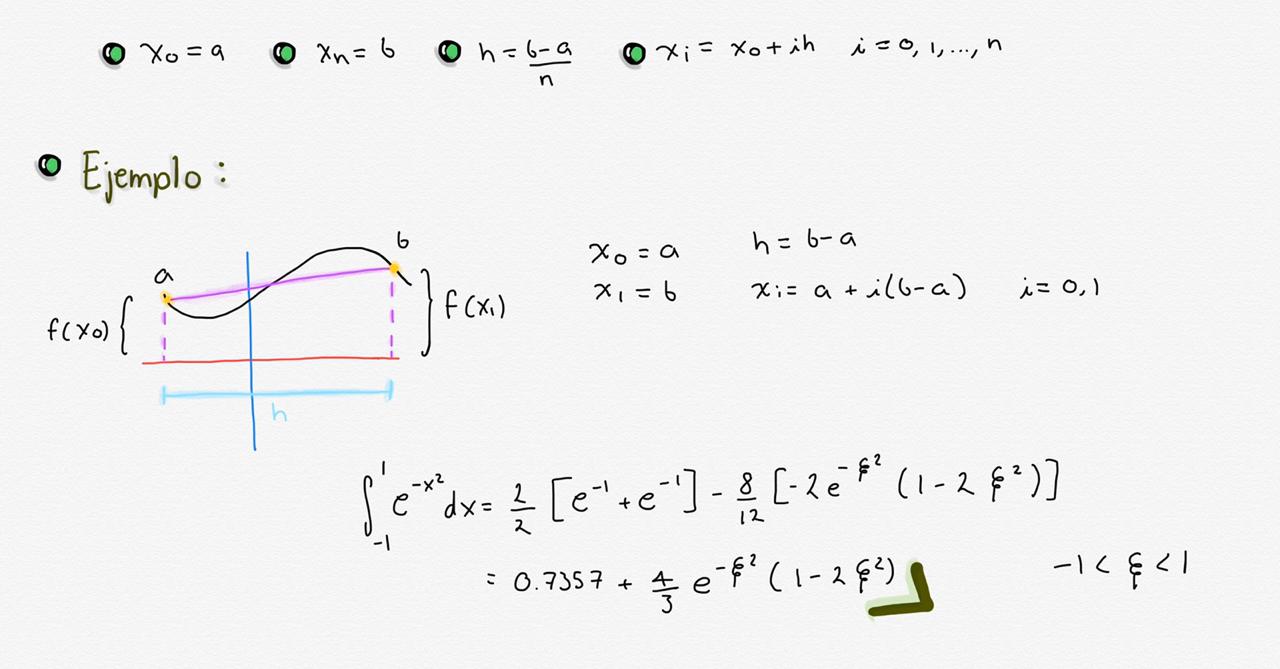 x₀ = a   xₙ = b   h = (b-a)/n   xᵢ = x₀ + ih   i = 0, 1, ..., n
Ejemplo :
a   b
f(x₀) {   } f(x₁)
h
x₀ = a   h = b - a
x₁ = b   xᵢ = a + i(b-a)   i = 0, 1
∫₋₁¹ e^(-x²) dx = 2/2 [e⁻¹ + e⁻¹] - 8/12 [-2e^(-ξ²) (1 - 2ξ²)]
= 0.7357 + 4/3 e^(-ξ²) (1 - 2ξ²)   -1 < ξ < 1